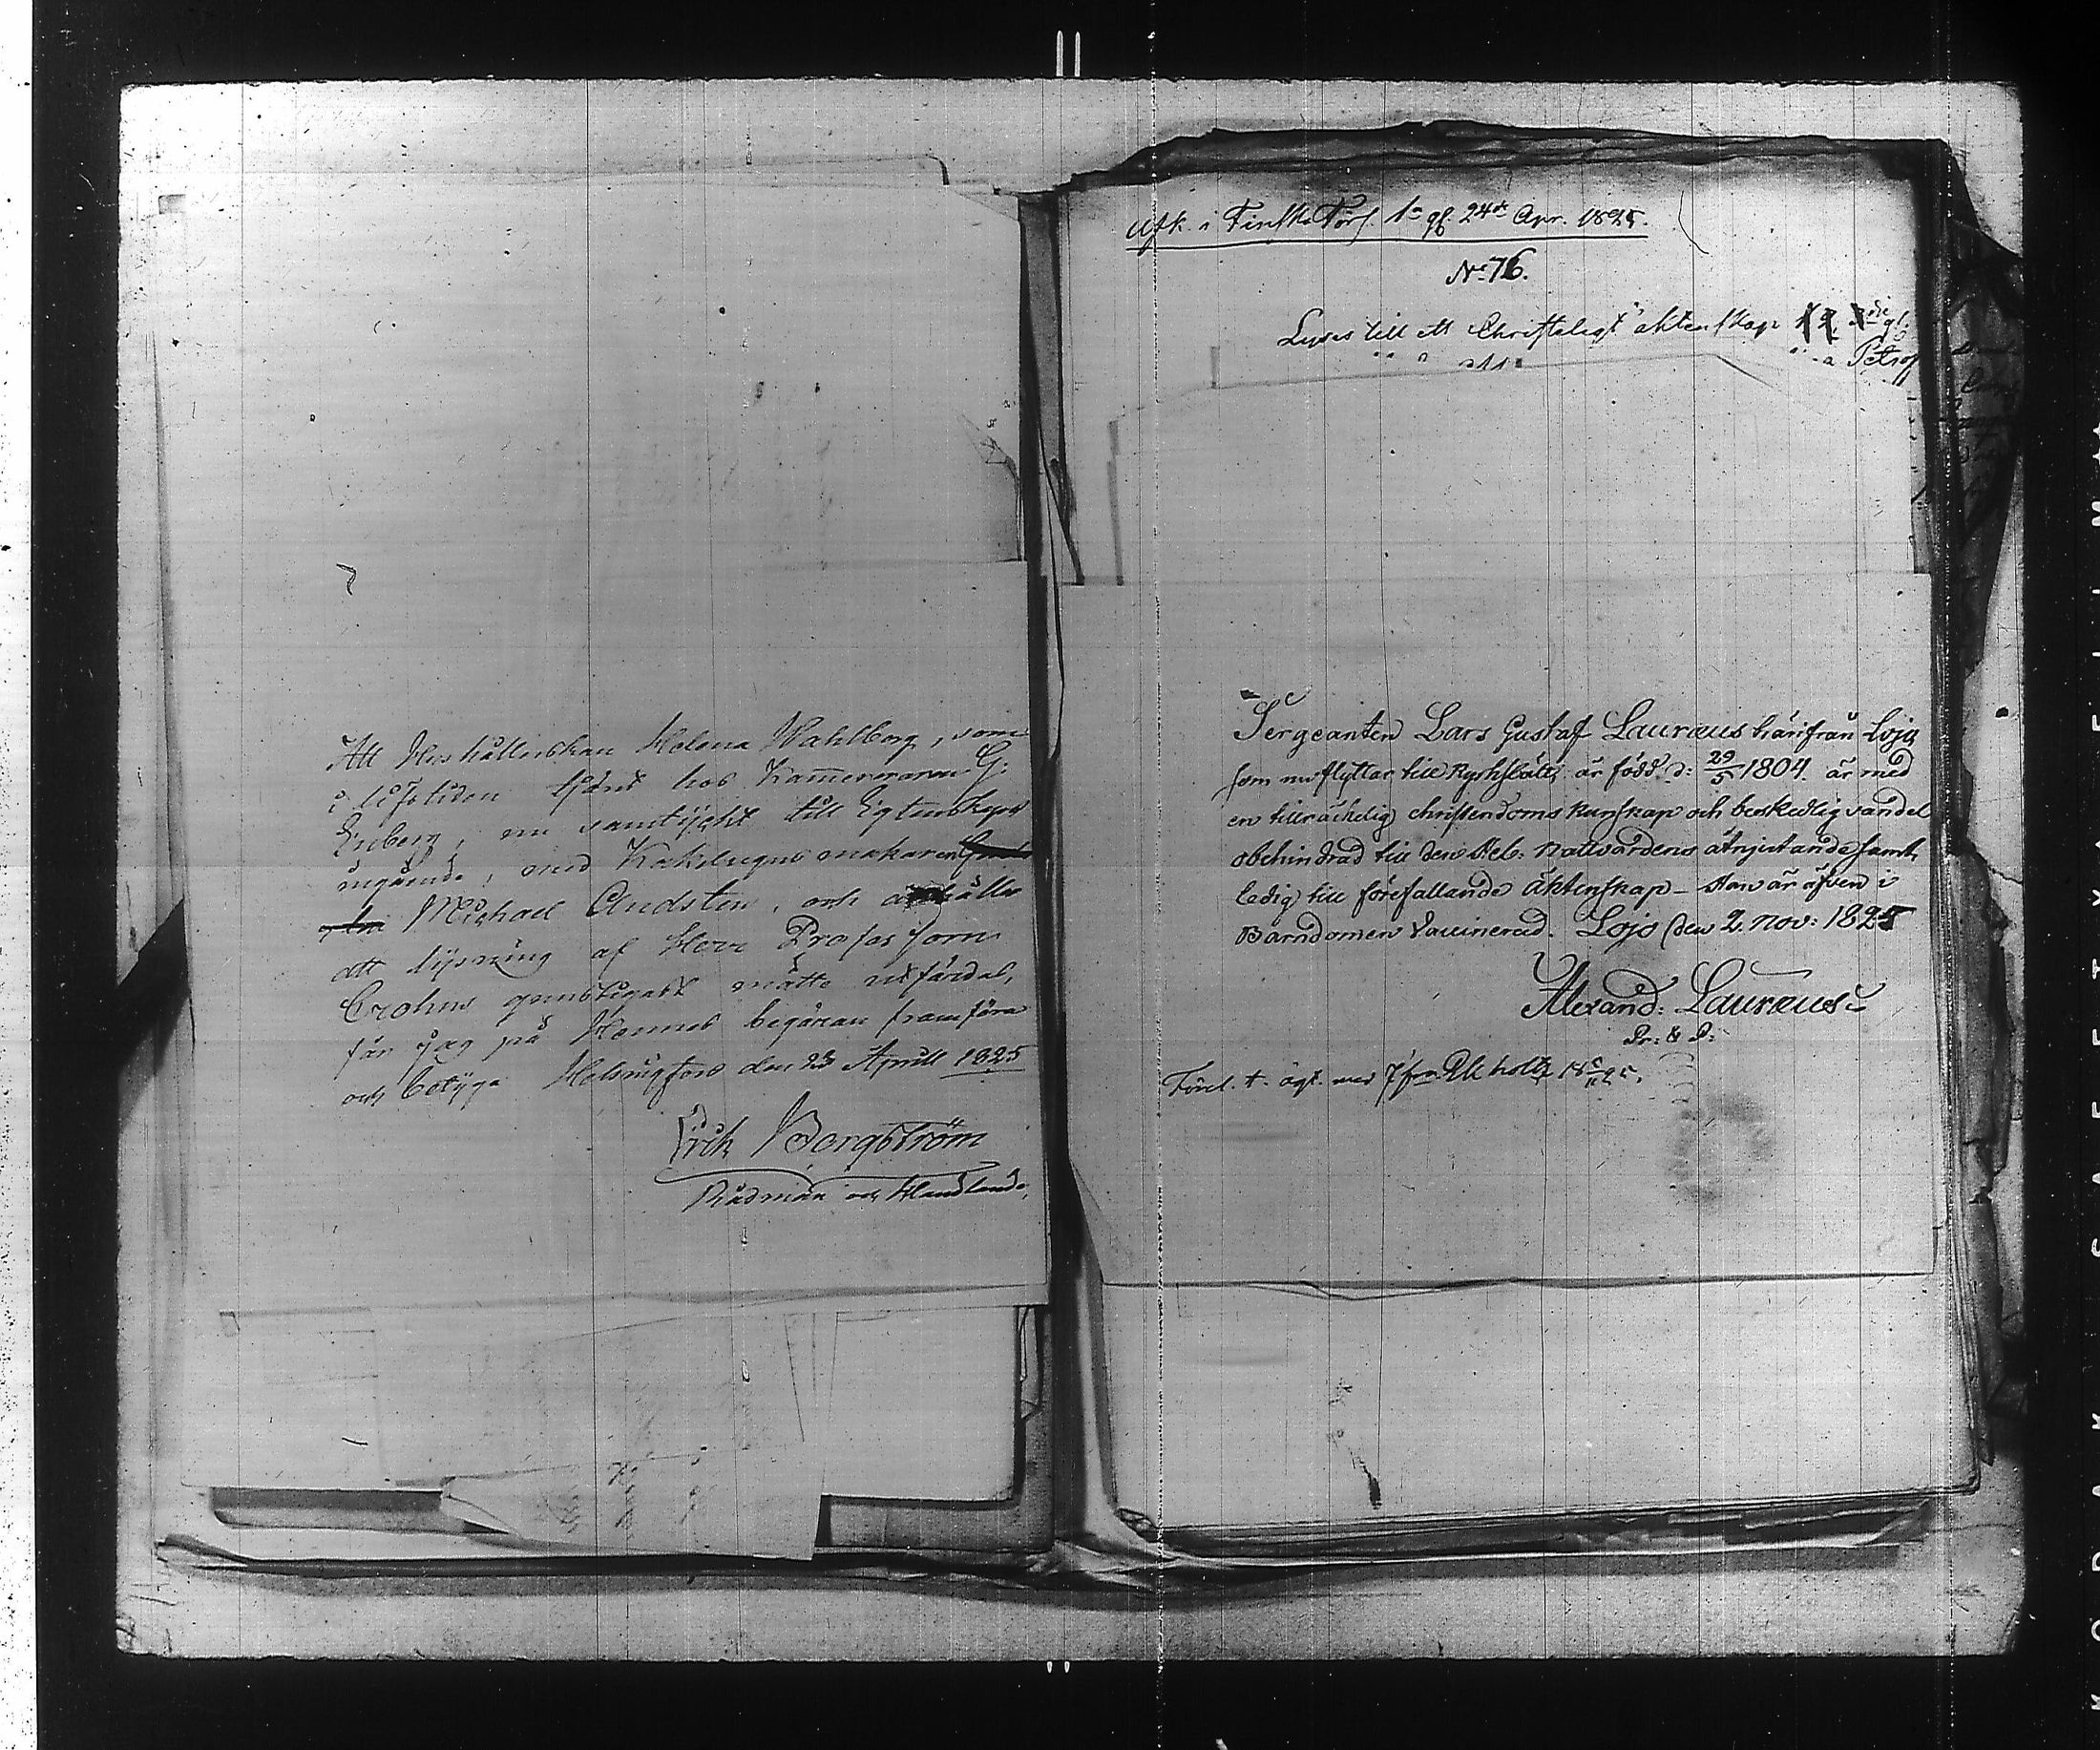 Att Hushållerskan Helena Wahlberg, som
i lifstiden tjänt hos Kamereraren G:
Enberg, nu samtyckt till Egtenskaps
ingående, med Kakelugnsmakaren
Michael Andsten, och anhåller
att lysning af Herr Professorn
Crohns gunstigast måtte utfärdas,
får jag på Hennes begäran framföra
och betyga Helsingfors den 23 Aprill 1825
Erik Borgström
Rådman och Handlande.
Afk. i Finska Förs. 1a g. 24de Apr. 1825.
No 76.
Lyses till ett Christeligt äktenskap
Sergeanten Lars Gustaf Lauræus härifrån Lojo
som nu flyttar till Kyrkslätt, är född d: 29/5 1804. är med
en tillräckelig christendoms kunskap och beskedlig vandel
obehindrad till den Hel: Nattvardens åtnjutande samt
ledig till förefallande Äktenskap – Han är äfven i
Barndomen Vaccinerad. Lojo den 2. Nov: 1825
Alexand: Lauræus
Pr: & P: